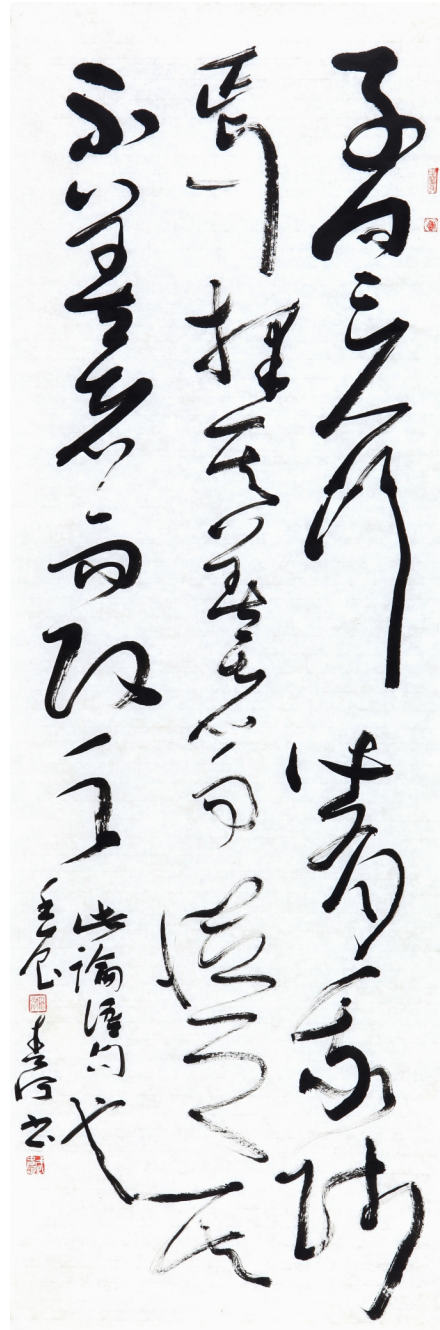 子曰三人行必有我師
焉擇其善者而從之其
不善者而改之
此論語句也
春河书